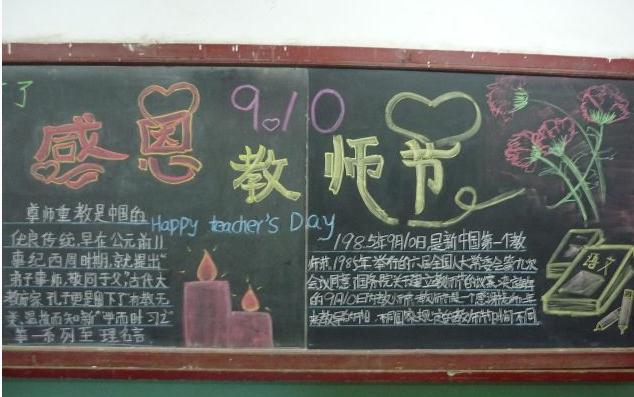 了
感恩
9.10
教师节
Happy teacher's Day
尊师重教是中国的
优良传统,早在公元前11
世纪西周时期,就提出"
弟子事师,敬同于父"古代大
教育家孔子更是留下了"有教无
类,温故而知新""学而时习之"
等一系列至理名言
1985年9月10日是新中国第一个教
师节.1985年举行的六届全国人大常委会第九次
会议同意国务院关于建立教师节的议案,决定每年
的9月10日为教师节.教师节是一个感谢老师
教导的节日,不同国家规定的教师节时间不同
语文